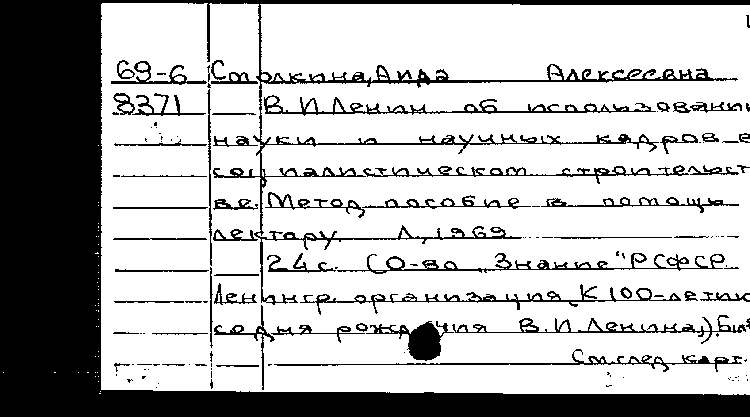 69-6 Столкина, Аида Алексеевна
8371 В. И. Ленин об использовании
науки и научных кадров в
социалистическом строительст
ве. Метод. пособие в помощь
лектору. Л., 1969
24 с. (О-во „Знание" РСФСР
Ленингр. организация. К 100-летию
со дня рождения В. И. Ленина.)
См. след. карт.